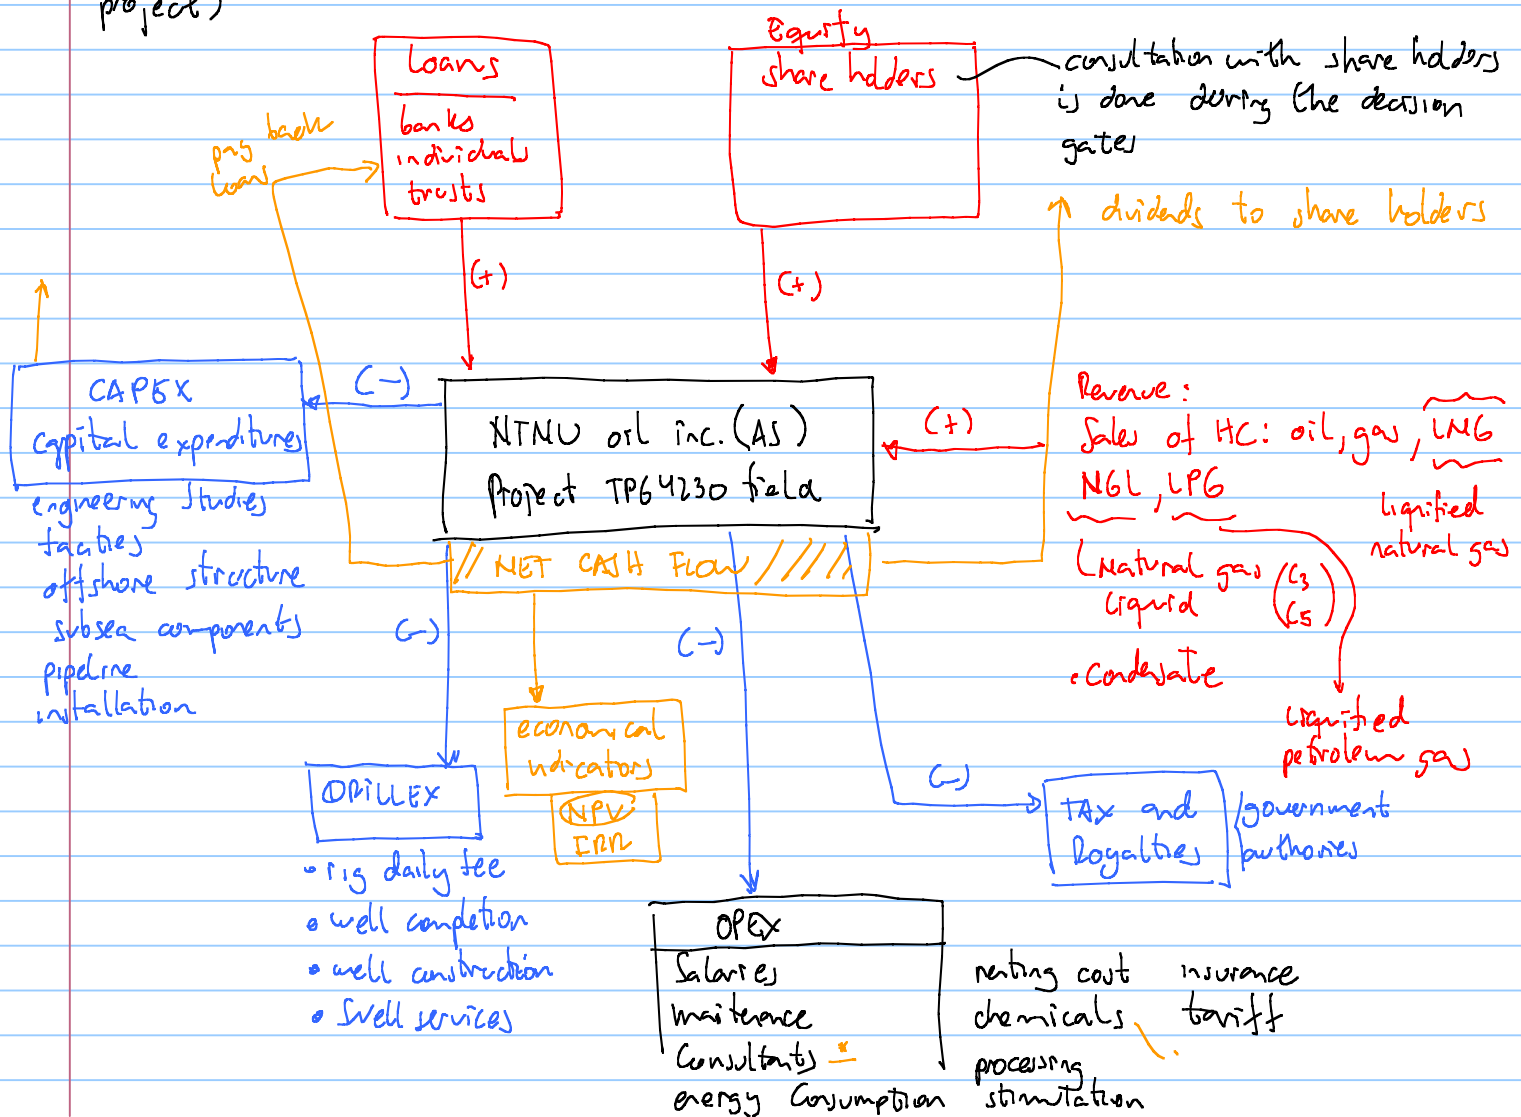 project)
Loans
banks
individuals
trusts
pay back
loans
(+)
Equity
share holders
(+)
consultation with share holders
is done during the decision
gates
dividends to share holders
CAPEX
capital expenditures
engineering studies
offshore structure
subsea components
pipeline
installation
(-)
NTNU oil inc. (AS)
Project TPG4230 field
// NET CASH FLOW /////
(+)
Revenue:
Sales of HC: oil, gas, LNG
NGL, LPG
Liquified
natural gas
(Natural gas
Liquid
(C3
C5)
• Condensate
Liquified
petroleum gas
(-)
(-)
(-)
economical
indicators
NPV
IRR
DRILLEX
• rig daily fee
• well completion
• well construction
• Swell services
TAX and
Royalties
government
authories
OPEX
Salaries
maitenance
Consultants *
energy Consumption
renting cost
chemicals
processing
stimulation
insurance
tariff